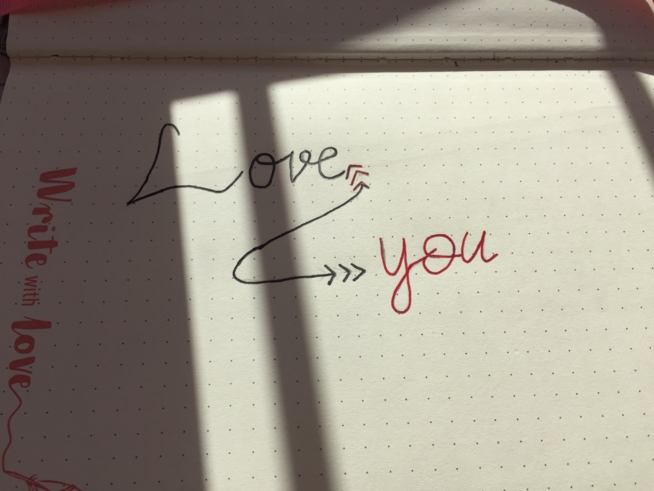 Write with love
Love
you